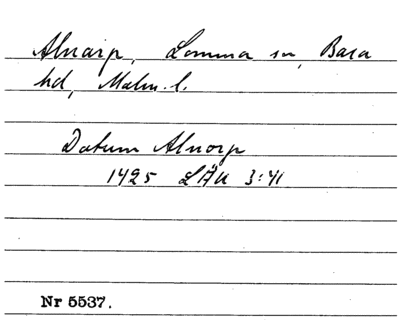 Alnarp, Lomma sn, Bara
hd, Malm. l.
Datum Alnorp
1425 LÄU 3:41
Nr 5537.